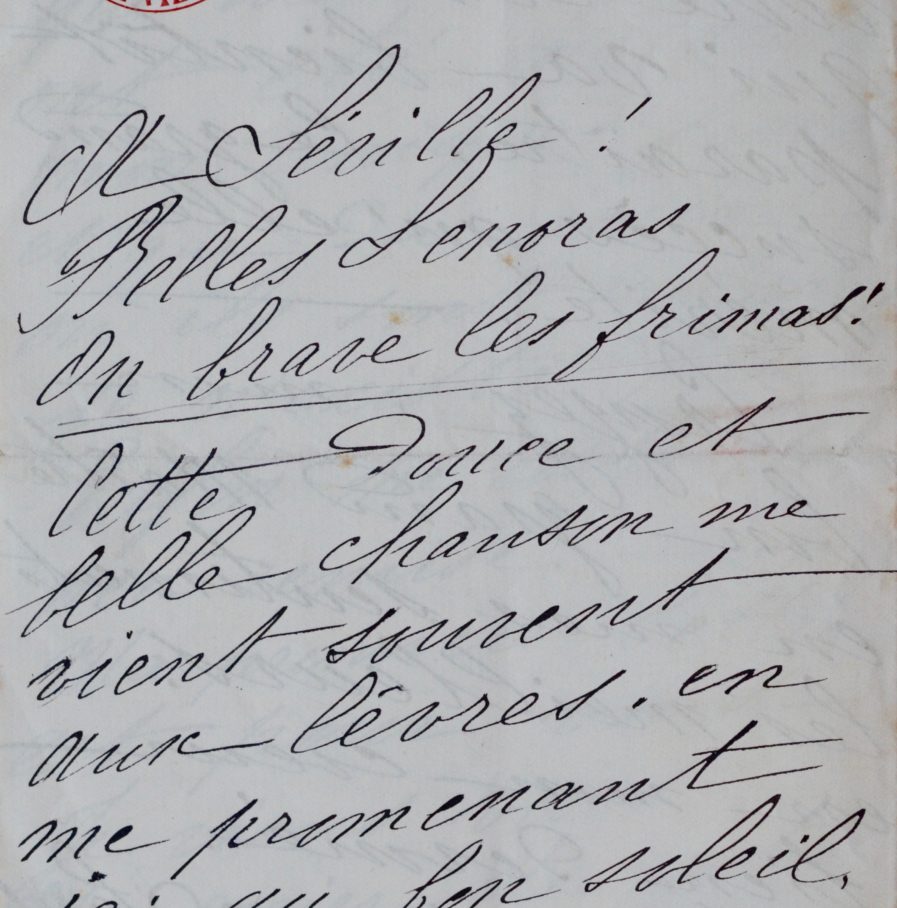 A Séville !
Belles Senoras
On brave les frimas !
Cette douce et
belle chanson me
vient souvent
aux lèvres. en
me promenant
ici au bon soleil.